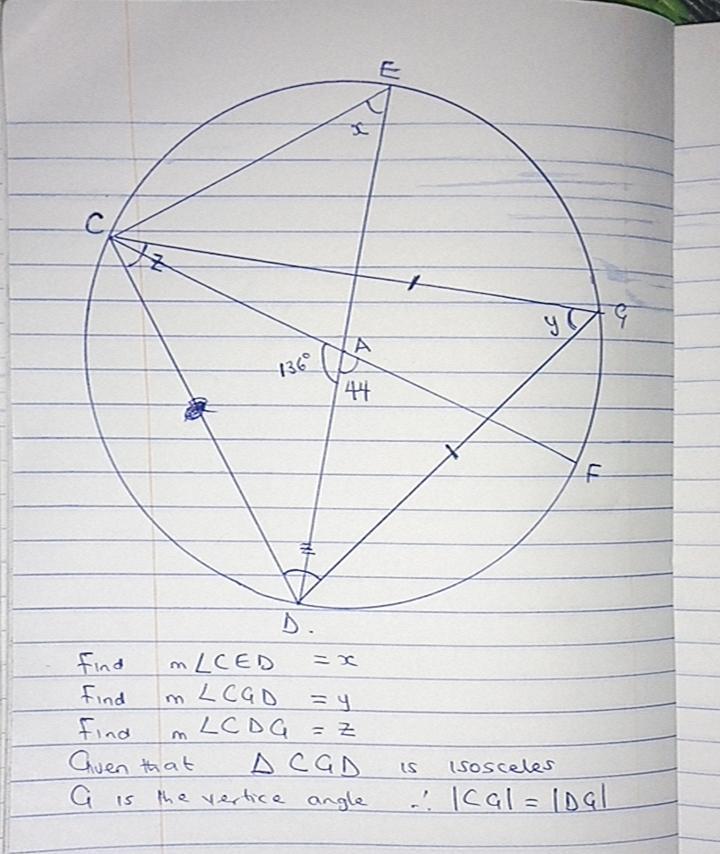 E
x
C
z
y
G
A
136°
44
F
z
D.
Find m∠CED = x
Find m∠CGD = y
Find m∠CDG = z
Given that Δ CGD is isosceles
G is the vertice angle ∴ |CG| = |DG|